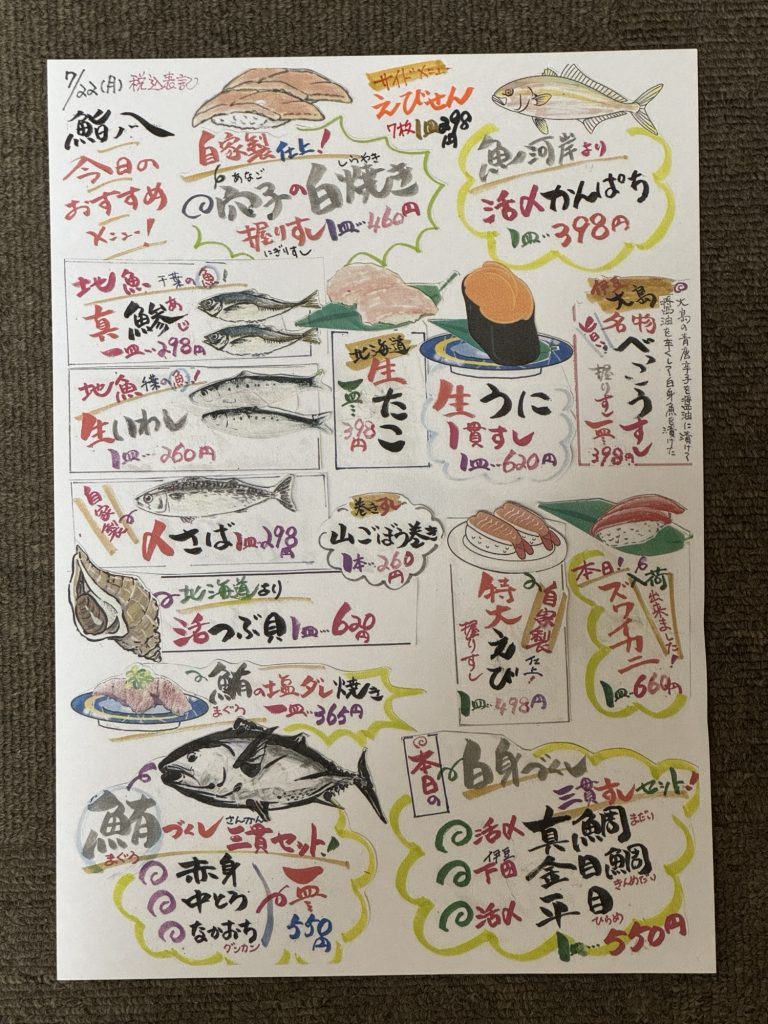 7/22(月) 税込表記
鮨八
今日の
おすすめ
メニュー!
自家製仕上!
あなご しらやき
穴子の白焼き
握りすし 1皿…460円
にぎりすし
サイドメニュー
えびせん
7枚1皿298円
魚河岸より
活〆かんぱち
1皿…398円
地魚 千葉の魚!
真鯵 あじ
一皿…298円
地魚 千葉の魚!
生いわし
1皿…260円
北海道
生たこ
一皿…398円
生うに
1貫すし
1皿…620円
伊豆大島
名物
べっこうすし
旨い?
握りすし一皿…398円
大島の青唐辛子を醤油に漬けて
醤油を辛くして白身魚を漬けた
自家製
〆さば 1皿298円
巻きすし
山ごぼう巻き
1本…260円
北海道より
活つぶ貝 1皿…620円
自家製仕上
特大えび
握りすし
1皿…498円
本日!入荷出来ました!
ズワイカニ
1皿…660円
鮪の塩ダレ焼き
まぐろ
一皿…365円
鮪づくし三貫セット!
まぐろ さんかん
赤身
中とろ
なかおち
グンカン
一皿…550円
本日の
白身づくし
三貫すしセット!
活〆 真鯛 まだい
伊豆下田 金目鯛 きんめだい
活〆 平目 ひらめ
1皿…550円